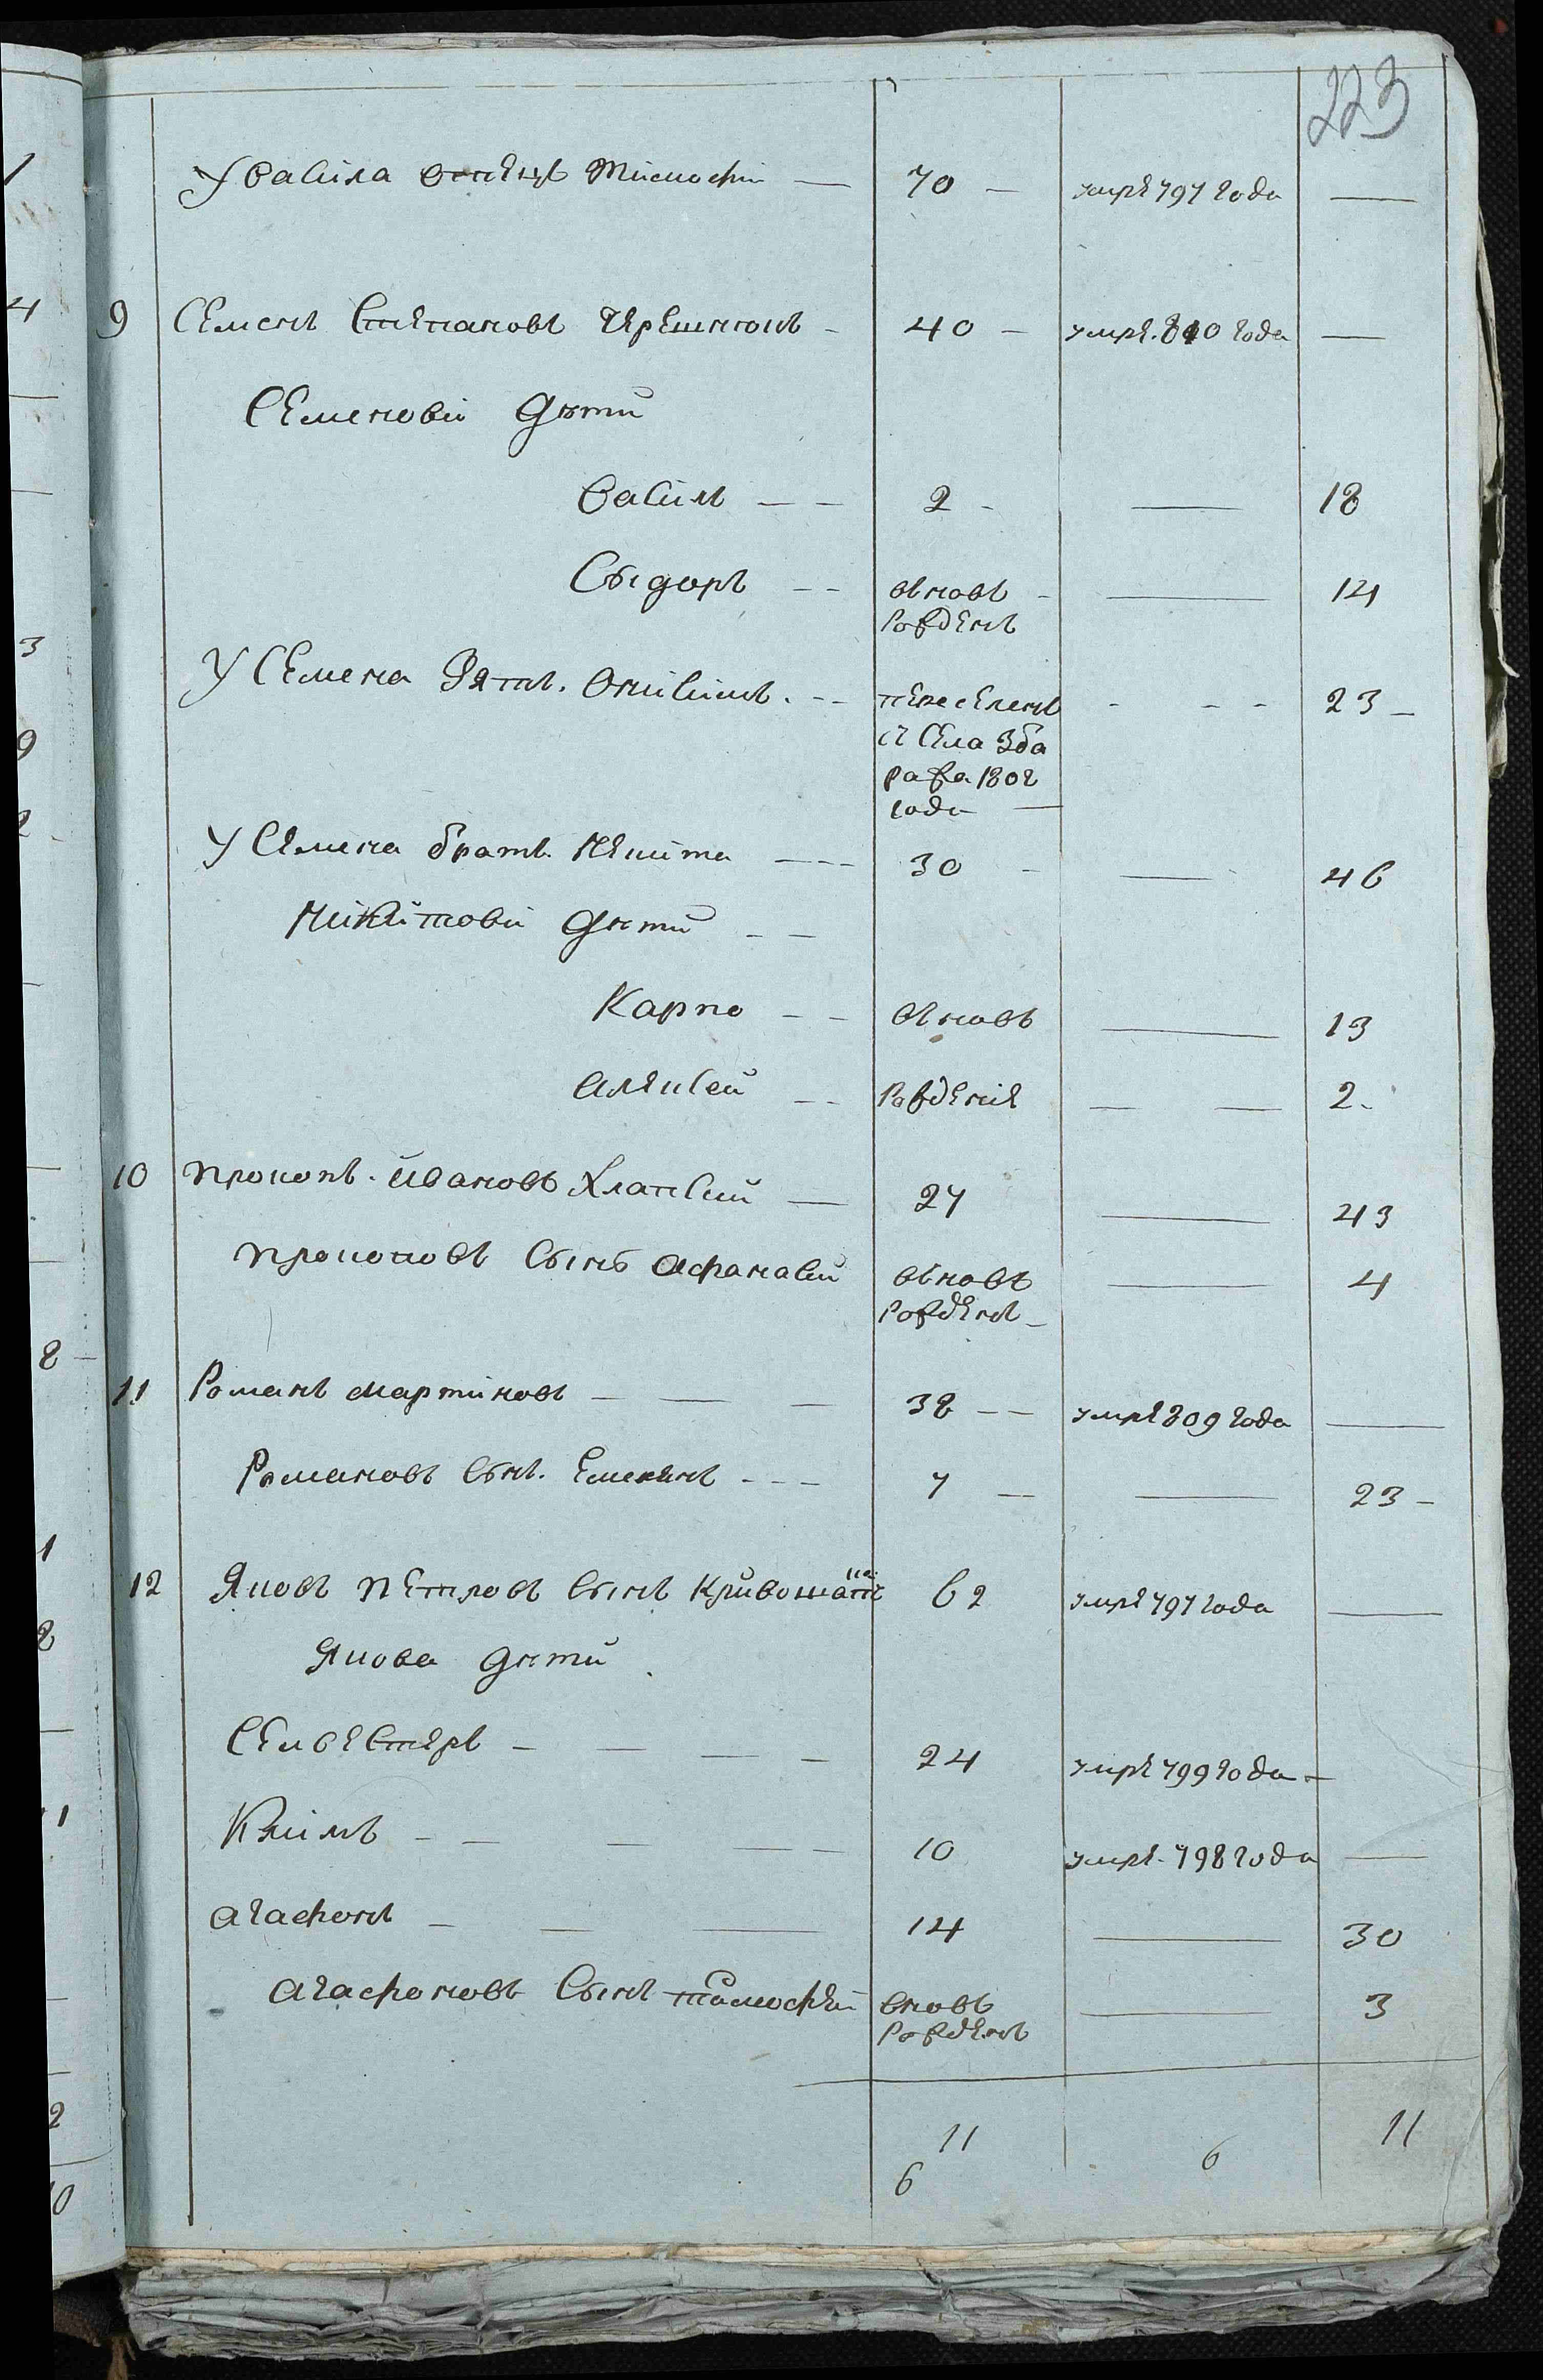 223
У Васила отецъ Тимофій — 70 — умре 797 года —
9 Семенъ Степановъ - 40 — умре. 810 года —
Семенови дѣти
Василь — — 2 - — 18
Сыдоръ — — вновъ - — 14
рожденъ
У Семена Зять. Онисимъ. - - переселенъ - - - 23 -
съ села Зба
ража 1802
года —
У Семена братъ Никита — - - 30 - — 46
Никитови дѣти — —
Карпо — — вновъ — 13
Алексей — — рождение — — 2.
10 Прокопъ. Ивановъ — 27 — 43
Прокоповъ сынъ Афанасий вновъ — 4
рожденъ -
11 Романъ Мартиновъ — — — 38 - - умре 809 года —
Романовъ сынъ. Емельянъ - - - 7 — — 23 -
12 Яковъ Петровъ сынъ 62 умре 797 года —
Якова дѣти
Селвестеръ — — — — 24 умре 799 года -
Климъ — — — — — 10 умре. 798 года —
Агафонъ — — — 14 — 30
Агафоновъ сынъ Тимофей вновъ — 3
рожденъ
11 11
6 6